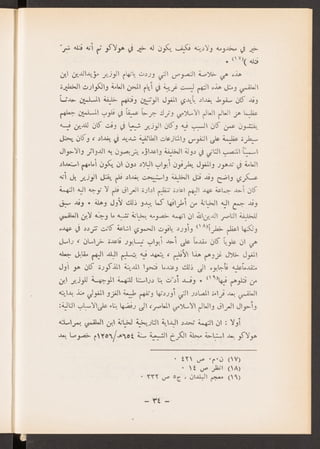 خير في مخدومه ولاذينه فكيف يكون له خير في هولاكو ثم أنه قتله شر"
قتلة )(١٧) ٠
هذه هي خلاصة النصوص التي وردت باتهام الوزير مؤيدالدين ابن
العلقمي ومثل هذه التهم ليست غريبة في أيام المحن العامة والكوارث الخطيرة
وقد كان سقوط بغداد بأيدي المغول الوثنيين وقتلهم خليفة المسلمين حدثاً
عظيما هز العالم الاسلامي وترك جرحاً عميقاً في قلوب المسلمين جعلهم
يفتشون عمن كان السبب فيه وكان الوزير شيعيا في وقت كان للدين فيه
سيطرة عظيمة على النفوس والمنازعات الطائفية شديد في بغداد ، وكان يحتل
اسمياً المنصب الثاني في دولة الخليفة وأعداؤه يتربصون به الدوائر والاحوال
العامة في تدهور والمغول يطرقون أبواب البلاد دون ان يكون أمامهم استعداد
عسكري واضح وقد قتل الخليفة واستبيحت بغداد فلم يقتل الوزير بل أنه
كان أحد جماعة عهد اليهم اعادة تنظيم ادارة العراق فلم لا توجه اليه التهمة
وقد جمع اليه الخيانة من أطرافها كما يبدو ذلك لأول وهلة ٠ وقد سبق
للخليفة الناصر الدين الله ان اتهمه خصومه بخيانة تشبه ما وجه لابن العلقمي
ولكنها أعظم خطراً(١٨) وأورد ياقوت الحموي اشاعة كانت تتردد في عهده
هي ان علوياً كان مقدماً على أحد أبواب نيسابور قاعدة خراسان ، راسل
المغول خلال غزوهم هذا الأقليم ، يتعهد فيه بتسليم البلد اليهم مقابل جعله
متقدماً عليه فأجابوه الى ذلك وعندما فتحوا المدينة المذكورة كان هو أول
من قتلوهم فيها(١٩) ٠ وقد أدت بنا دراستنا للتهمة الموجهة للوزير ابن
العلقمي بعد قراءة المصادر التي أوردتها وتفهم طبيعة الغزو المغولي منذ بدايته
وأحوال العراق والعالم الاسلامي المعاصر، الى رفضها بناء على الأسباب التالية:
أولا : ان التهمة تحدد البداية التاريخية لخيانة ابن العلقمي بمراسلته
هولاكو بعد استباحة محلة الكرخ الشيعية سنة ٦٥٤هـ/١٢٥٦م خصوصا بعد
(١٧) ن٠م٠ ص ٤٢١ ٠
(١٨) انظر ص ١٤ ٠
(١٩) معجم البلدان ، ج٥ ص ٣٣٢ ٠
- ٣٤ -